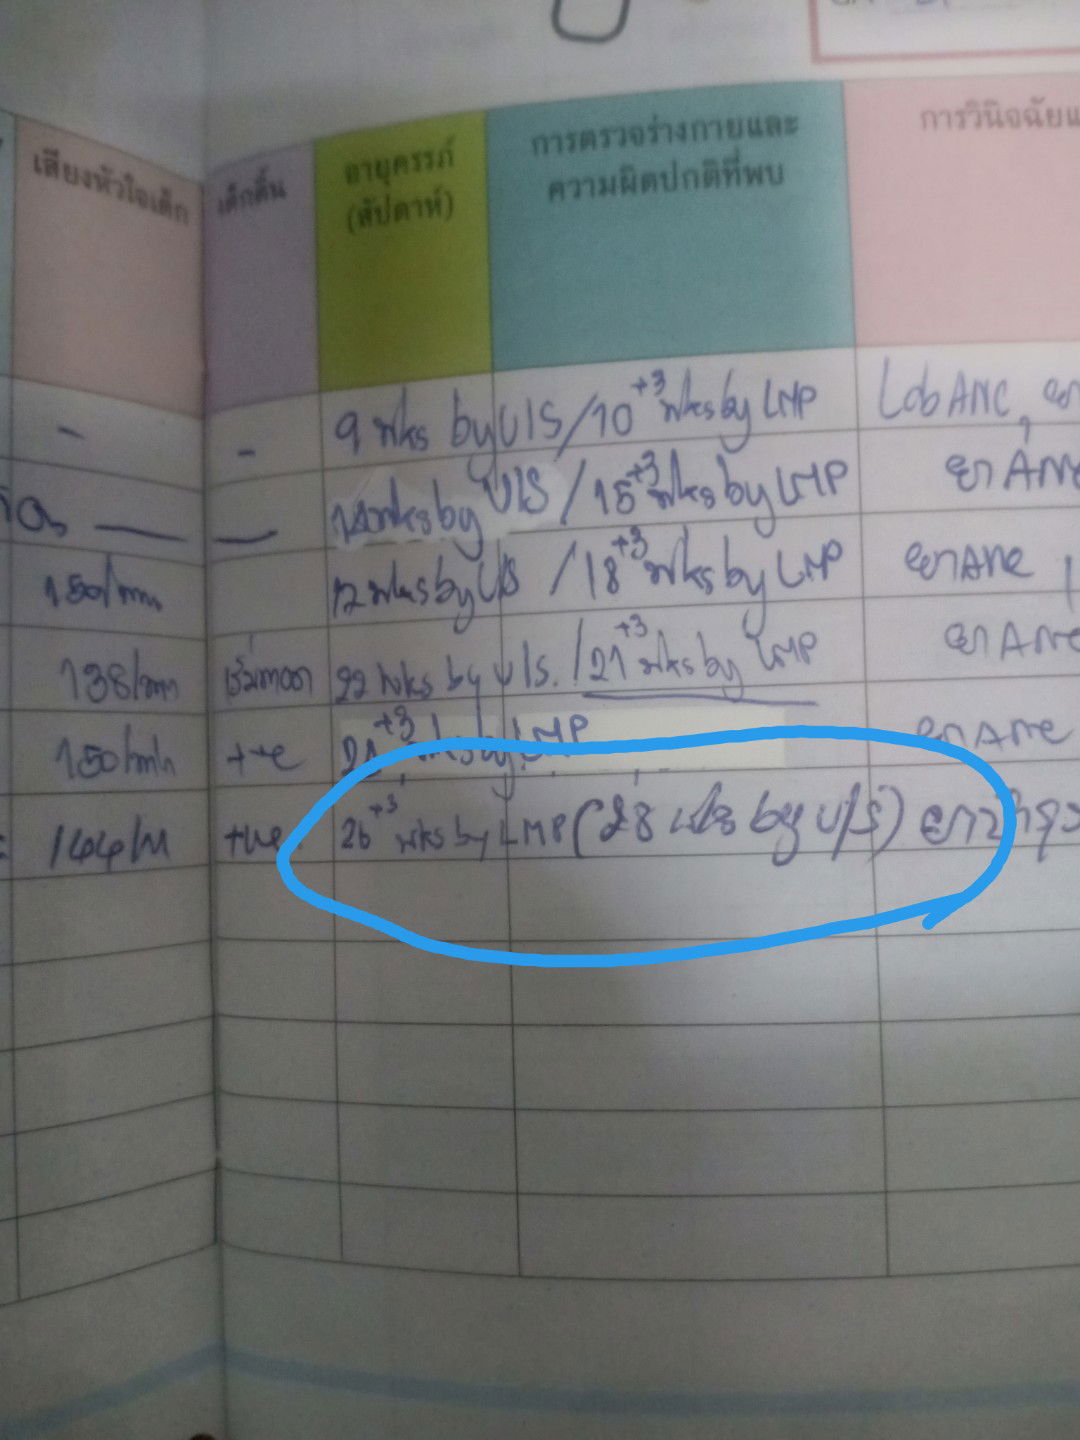 เสียงหัวใจเด็ก
เด็กดิ้น
อายุครรภ์
(สัปดาห์)
การตรวจร่างกายและ
ความผิดปกติที่พบ
การวินิจฉัย
- - 9 wks by U/S/10+3 wks by LMP Lab ANC,
wks by U/S / 15+3 wks by LMP ยา ANC
150/min wks by U/S / 18+3 wks by LMP ยา ANC
138/min 22 wks by U/S. / 21+3 wks by LMP ยา ANC
150/min +ve +3 wks by LMP ยา ANC
144/M +ve 26+3 wks by LMP (28 wks by U/S)